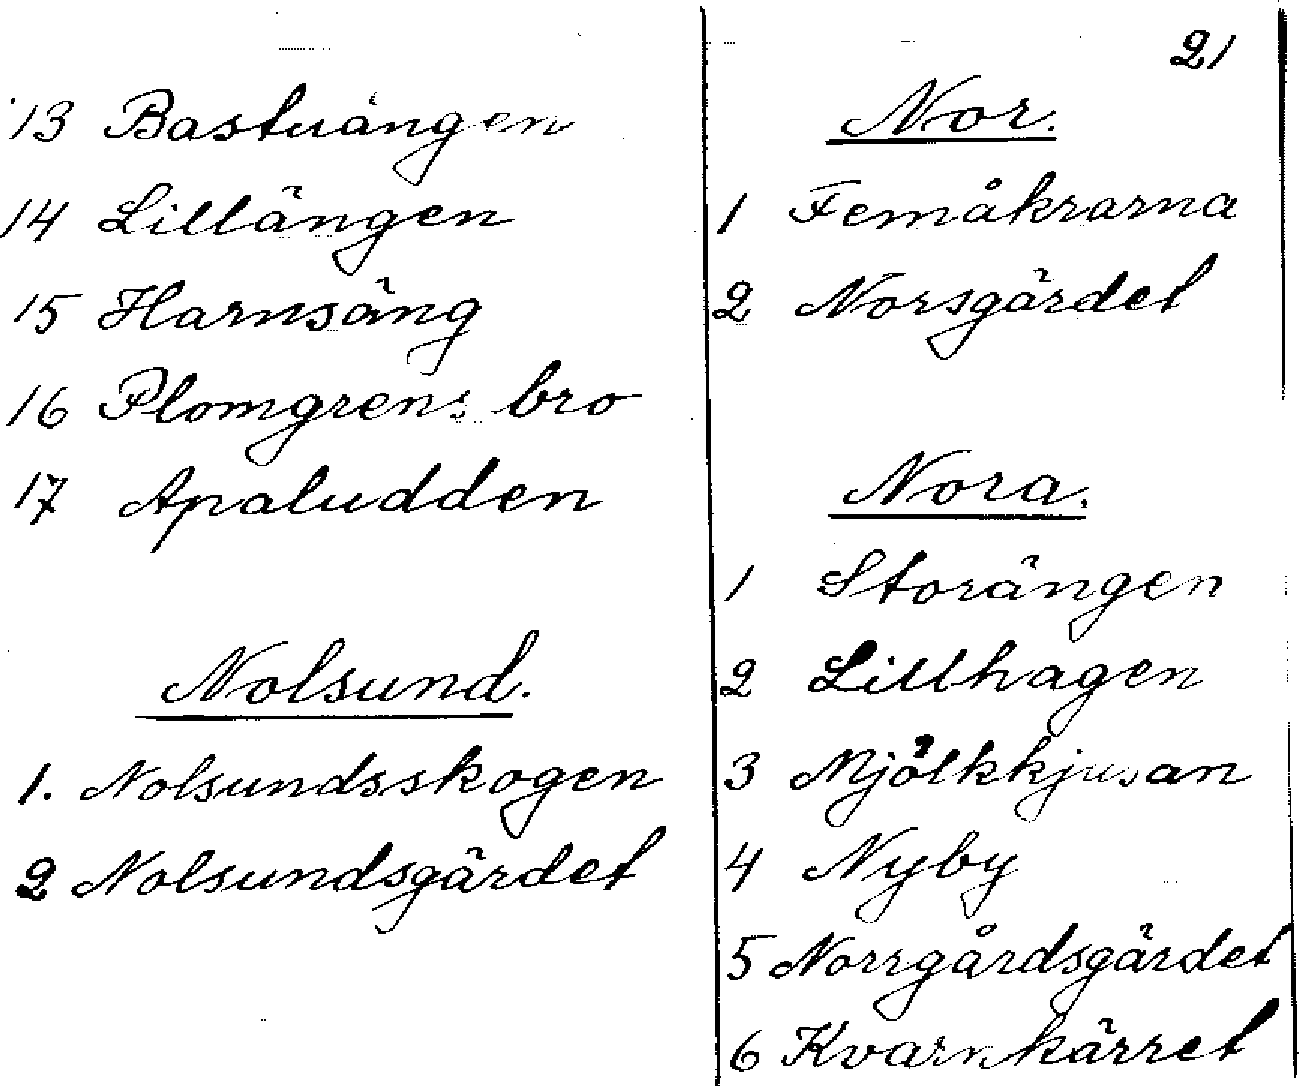 13 Bastuängen
14 Lillängen
15 Harnsäng
16 Plomgrens bro
17 Apaludden
Nolsund.
1. Nolsundsskogen
2 Nolsundsgärdet
21
Nor.
1 Femåkrarna
2 Norsgärdet
Nora.
1 Storängen
2 Lillhagen
3 Mjölkkjusan
4 Nyby
5 Norrgårdsgärdet
6 Kvarnkärret